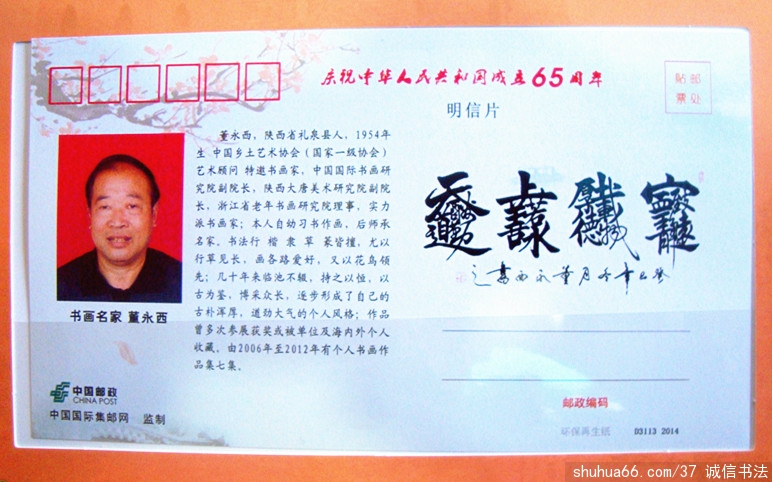 庆祝中华人民共和国成立65周年
明信片
贴邮
票处
董永西，陕西省礼泉县人，1954年
生 中国乡土艺术协会（国家一级协会）
艺术顾问 特邀书画家，中国国际书画研
究院副院长，陕西大唐美术研究院副院
长，浙江省老年书画研究院理事，实力
派书画家；本人自幼习书作画，后师承
名家。书法行 楷 隶 草 篆皆擅，尤以
行草见长，画各路爱好，又以花鸟领
先；几十年来临池不辍，持之以恒，以
古为鉴，博采众长，逐步形成了自己的
古朴浑厚，遒劲大气的个人风格；作品
曾多次参展获奖或被单位及海内外个人
收藏。由2006年至2012年有个人书画作
品集七集。
书画名家 董永西
中国邮政
CHINA POST
中国国际集邮网 监制
邮政编码
环保再生纸 03113 2014
shuhua66.com/37 诚信书法